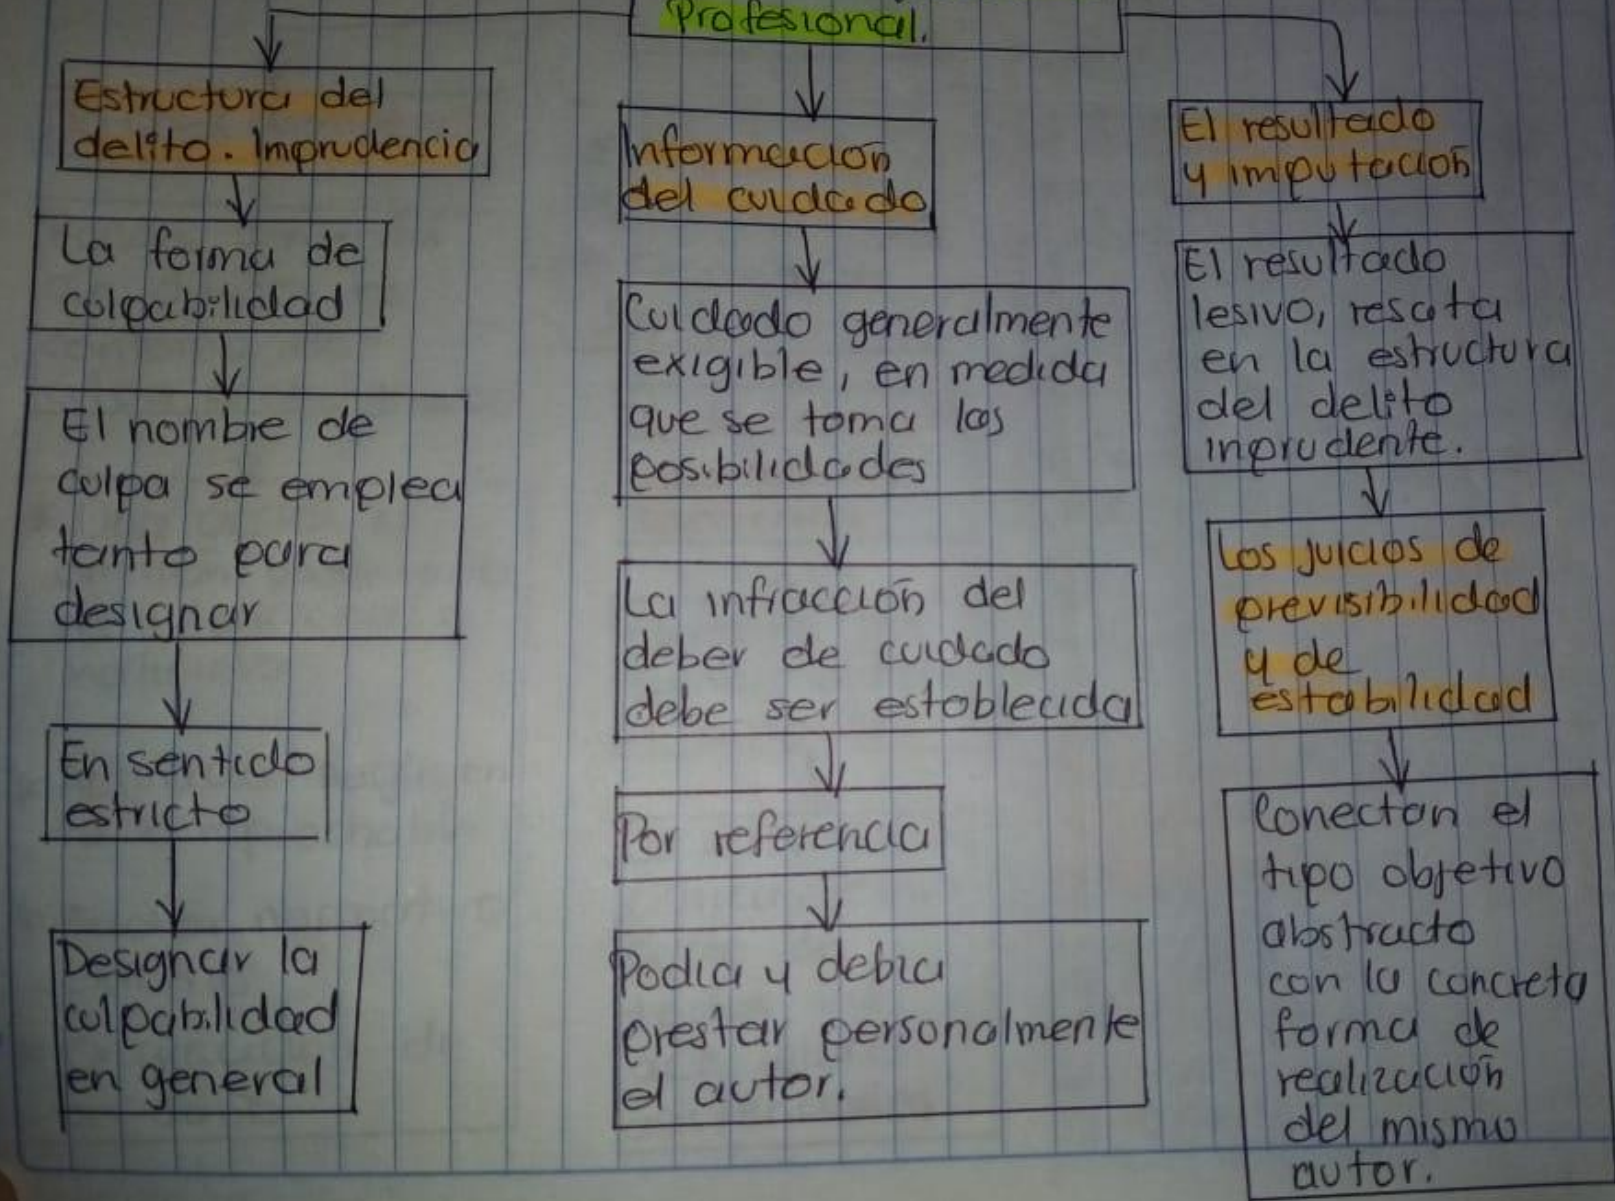 Profesional.
Estructura del
delito. Imprudencia
La forma de
culpabilidad
El nombre de
culpa se emplea
tanto para
designar
En sentido
estricto
Designar la
culpabilidad
en general
Informacion
del cuidado
Cuidado generalmente
exigible, en medida
que se toma las
posibilidades
La infracción del
deber de cuidado
debe ser establecida
Por referencia
Podia y debia
prestar personalmente
el autor.
El resultado
y imputación
El resultado
lesivo, resata
en la estructura
del delito
inprudente.
Los juicios de
previsibilidad
y de
estabilidad
Conectan el
tipo objetivo
abstracto
con la concreta
forma de
realización
del mismo
autor.